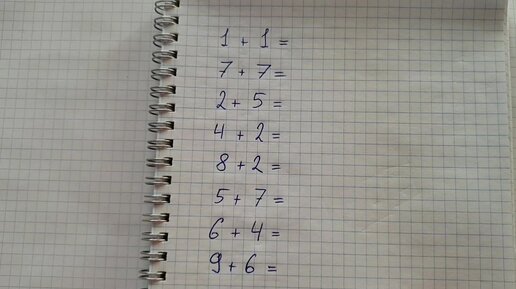 1 + 1 =
7 + 7 =
2 + 5 =
4 + 2 =
8 + 2 =
5 + 7 =
6 + 4 =
9 + 6 =